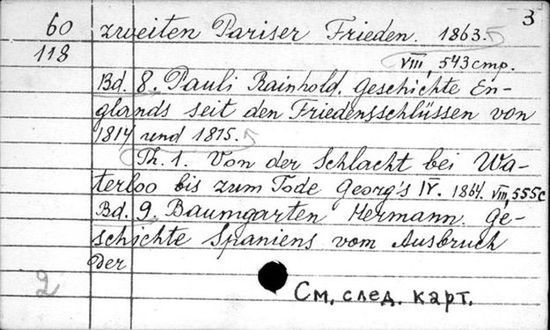 3
60 zweiten Pariser Frieden. 1863.
118 VIII, 543 стр.
Bd. 8. Pauli Rainhold. Geschichte En-
glands seit den Friedensschlüssen von
1814 und 1815.
Th. 1. Von der Schlacht bei Wa-
terloo bis zum Tode Georg's IV. 1864. VIII, 555 с
Bd. 9. Baumgarten Hermann. Ge-
schichte Spaniens vom Ausbruch
der
2
См. след. карт.